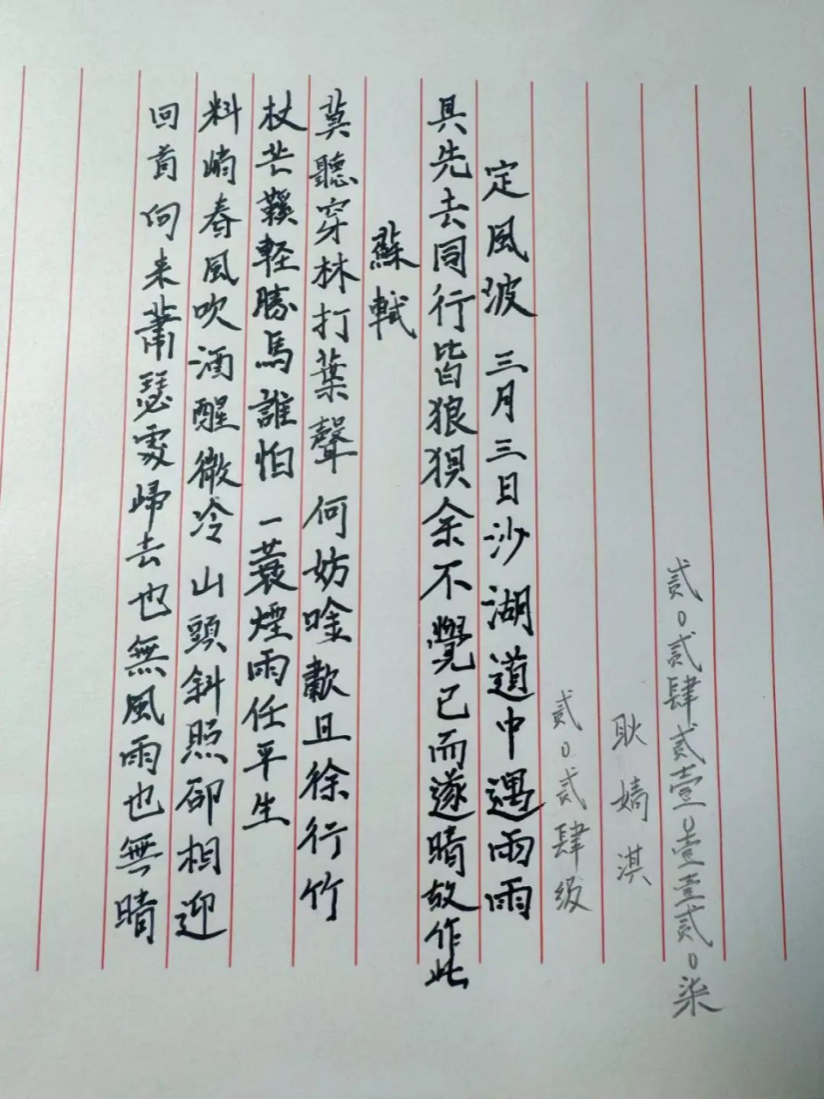 贰0贰肆贰壹0壹壹贰0柒
耿嫡淇
贰0贰肆级
定風波 三月三日沙湖道中遇雨雨
具先去同行皆狼狽余不覺已而遂晴故作此
蘇軾
莫聽穿林打葉聲 何妨唫歗且徐行竹
杖芒鞵輕勝馬誰怕 一蓑煙雨任平生
料峭春風吹酒醒微冷山頭斜照卻相迎
回首向来蕭瑟處歸去也無風雨也無晴